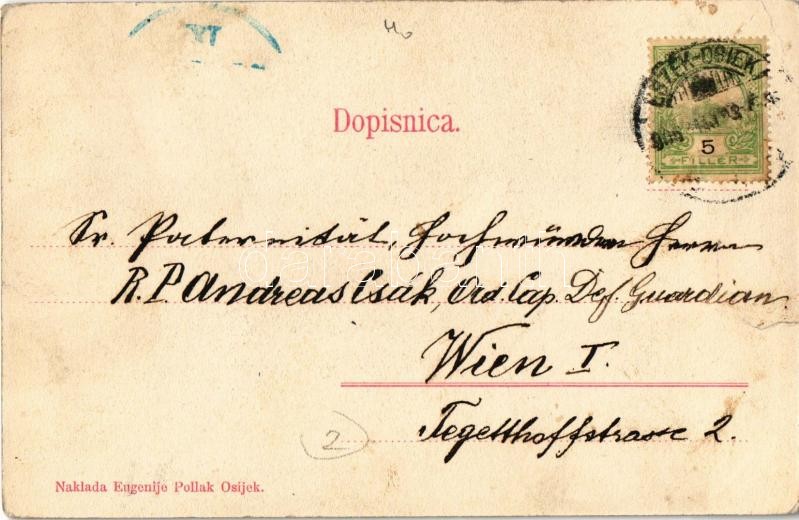 XI
40
Dopisnica.
ESZÉK-OSIEK
5
FILLÉR
Sr. Paternität, Hochwürden Herrn
R. P. Andreas Csák, Ord. Cap. Def. Guardian.
Wien I.
Tegetthoffstrasse 2.
2
Naklada Eugenije Pollak Osijek.